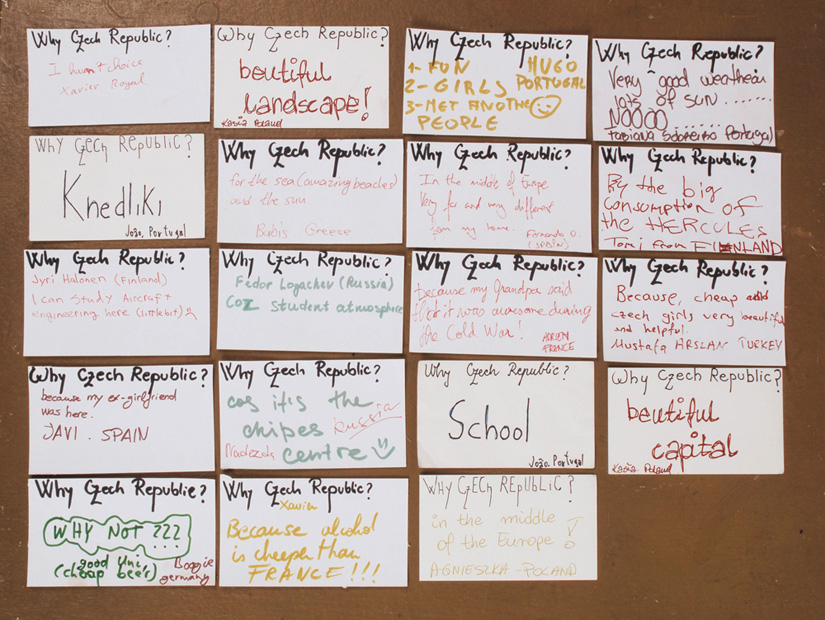 Why Czech Republic?
I hav't choice
Xavier Royal
Why Czech Republic?
beutiful
landscape!
Kasia Poland
Why Czech Republic?
1- FUN HUGO
2- GIRLS PORTUGAL
3- MET ANOTHE
PEOPLE
Why Czech Republic?
Very good weather
lots of sun .......
NOOOO.....
Fabiana Portugal
WHY CZECH REPUBLIC?
Knedliki
João, Portugal
Why Czech Republic?
for the sea (amazing beaches)
and the sun.
Babis Greece
Why Czech Republic?
In the middle of Europe
Very far and very different
from my home.
Fernando O.
(SPAIN)
Why Czech Republic?
By the big
consumption of
the HERCULES
Tomi from FINLAND
Why Czech Republic?
Jyri Halonen (Finland)
I can study Aircraft
engineering here (little bit)
Why Czech Republic?
Fedor Logachev (Russia)
Coz student atmosphere
Why Czech Republic?
because my Grandpa said
that it was awesome during
the Cold War!
ADRIEN
FRANCE
Why Czech Republic?
Because, cheap and
czech girls very beautiful
and helpful.
Mustafa ARSLAN TURKEY
Why Czech Republic?
because my ex-girlfriend
was here.
JAVI . SPAIN
Why Czech Republic?
cos it's the
chipes Russia
Nadezda centre
Why Czech Republic?
School
João, Portugal
Why Czech Republic?
beutiful
capital
Kasia Poland
Why Czech Republic?
WHY NOT ???
good Uni,
(cheap beer)
Boogie
germany
Why Czech Republic?
Xavier
Because alcohol
is cheeper than
FRANCE!!!
WHY CZECH REPUBLIC?
in the middle
of the Europe !
AGNIESZKA - POLAND